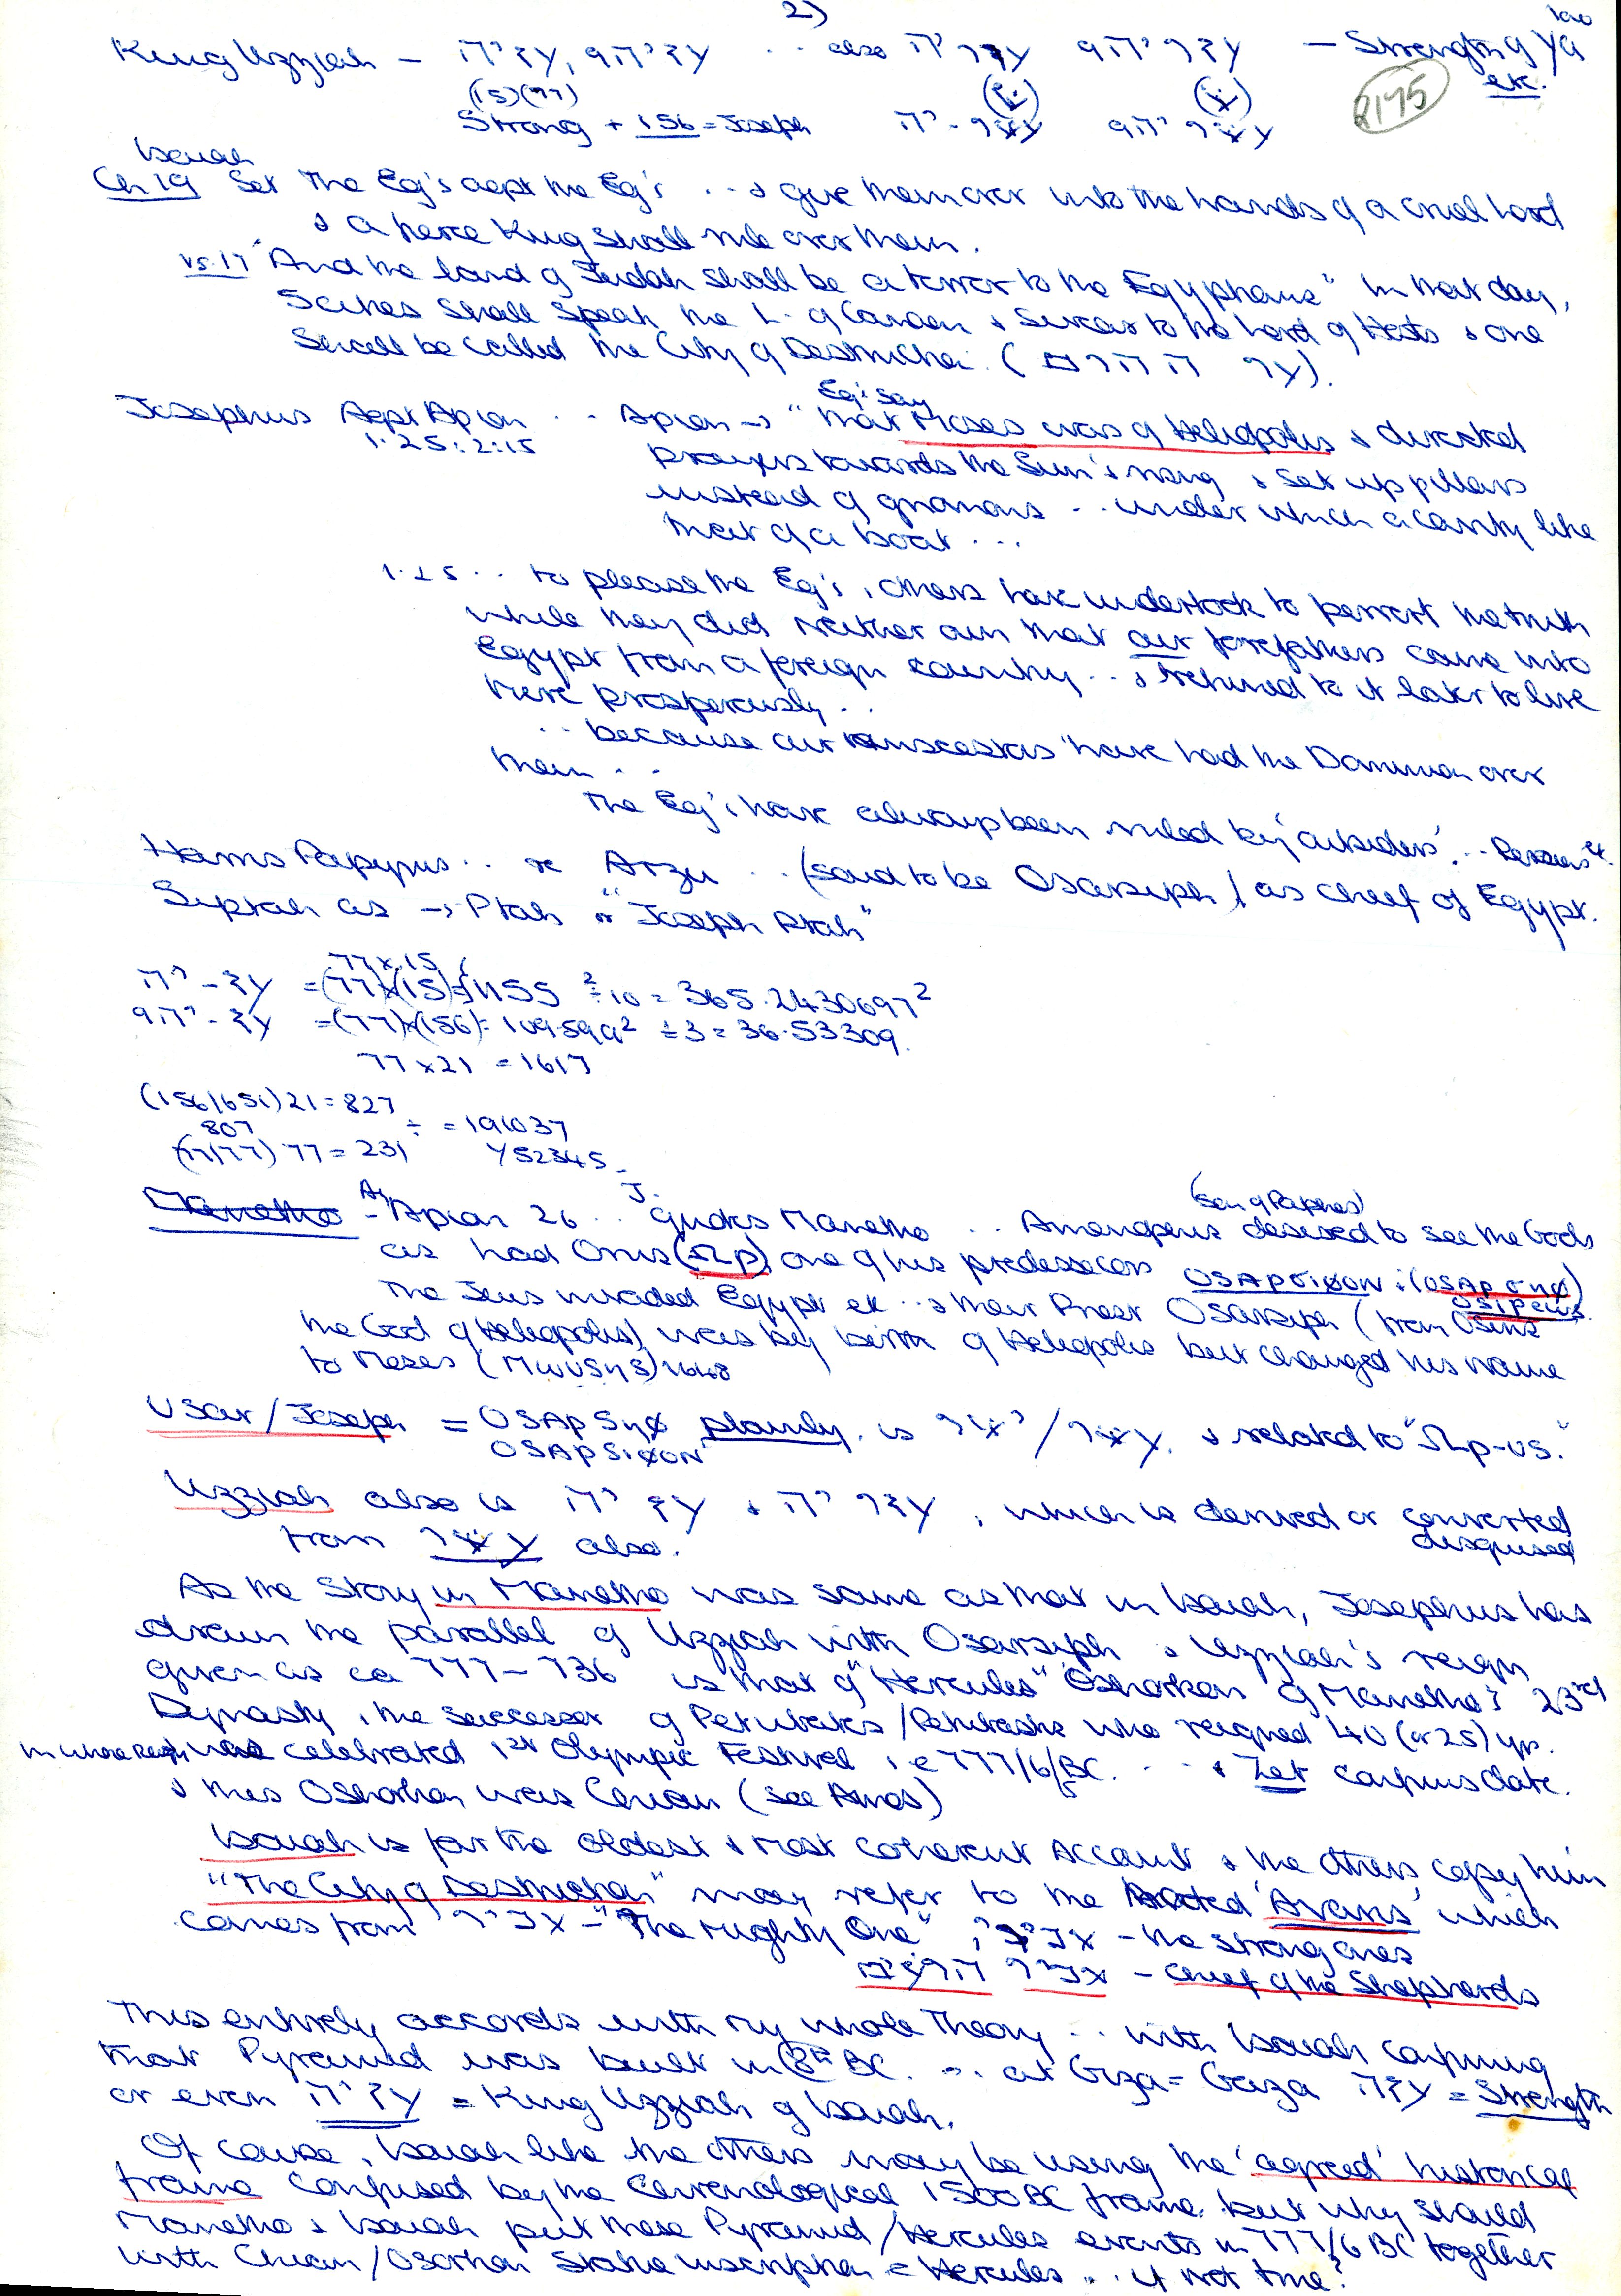 2)
King Uzziah – יה עז, והי עז .. also יה עזר והי עזר – Strength of Ya
etc.
(15)(77)
Strong + 156 = Joseph
2175
Isaiah
Ch 19 Set the Eg's agst the Eg's ... & give them over into the hands of a cruel Lord
& a fierce King shall rule over them.
vs.17 "And the land of Judah shall be a terror to the Egyptians" In that day,
5 cities shall speak the L. of Canaan & swear to the Lord of Hosts & one
shall be called the City of Destruction.
Eg's say
Josephus Agst Apion .. Apion → "that Moses was of Heliopolis & directed
1.25:2:15
prayers towards the Sun's rising & set up pillars
instead of gnomons .. under which a cavity like
that of a boat ...
1.25 .. to please the Eg's, others have undertook to pervert the truth
while they did neither own that our forefathers came into
Egypt from a foreign country .. & returned to it later to live
there prosperously ..
.. because our ancestors "have had the Dominion over
them ..
The Eg's have always been ruled by 'outsiders' ..
Harris Papyrus .. re Arzu .. (said to be Osarsiph) as chief of Egypt.
Siptah as → Ptah or "Joseph Ptah"
77x15
= (77)x(15) = 1155 ÷ 10 = 365.2430697²
= (77)x(156) = 109.59a² ÷ 3 = 36.53309.
77 x 21 = 1617
(156/651) 21 = 827
807 ÷ = 191037
(77/77) 77 = 231 452345
(son of Paphos)
Manetho – Apion 26 .. J. quotes Manetho .. Amenophis desired to see the Gods
as had Orus (Ωρ), one of his predessecors
The Jews invaded Egypt etc .. & their Priest Osarsiph (from Osiris
the God of Heliopolis) was by birth of Heliopolis but changed his name
to Moses (Mωυσης) 1648
Usar/Joseph = OSApSηφ plainly is & related to "Ωρ-us."
OSApSiφON
Uzziah also is יה עז & יה עזר, which is derived or converted
disguised
from also.
As the story in Manetho was same as that in Isaiah, Josephus has
drawn the parallel of Uzziah with Osarsiph & Uzziah's reign
given as ca 777–736 is that of "Hercules" Oshorkon of Manetho's 23rd
Dynasty, the successor of Petubates/Petubastis who reigned 40 (or 25) yrs.
in whose reign was celebrated 1st Olympic Festival i.e 777/6/5 BC. .. & Zet confirms date.
& this Osorkon was Chiun (see Amos)
Isaiah is far the oldest & most coherent Account & the others copy him
"The City of Destruction" may refer to the hated 'Avaris' which
comes from אביר – "The mighty One", – the strong ones
– chief of the Shepherds
This entirely accords with my whole Theory .. with Isaiah confirming
that Pyramid was built in 8th BC. .. at Giza = Gaza עזה = Strength
or even = King Uzziah of Isaiah.
Of cause, Isaiah like the others may be using the 'agreed' historical
frame confused by the Chronological 1500 BC frame but why should
Manetho & Isaiah put these Pyramid/Hercules events in 777/6 BC together
with Chiun/Osorkon Statue inscription = Hercules .. if not true?